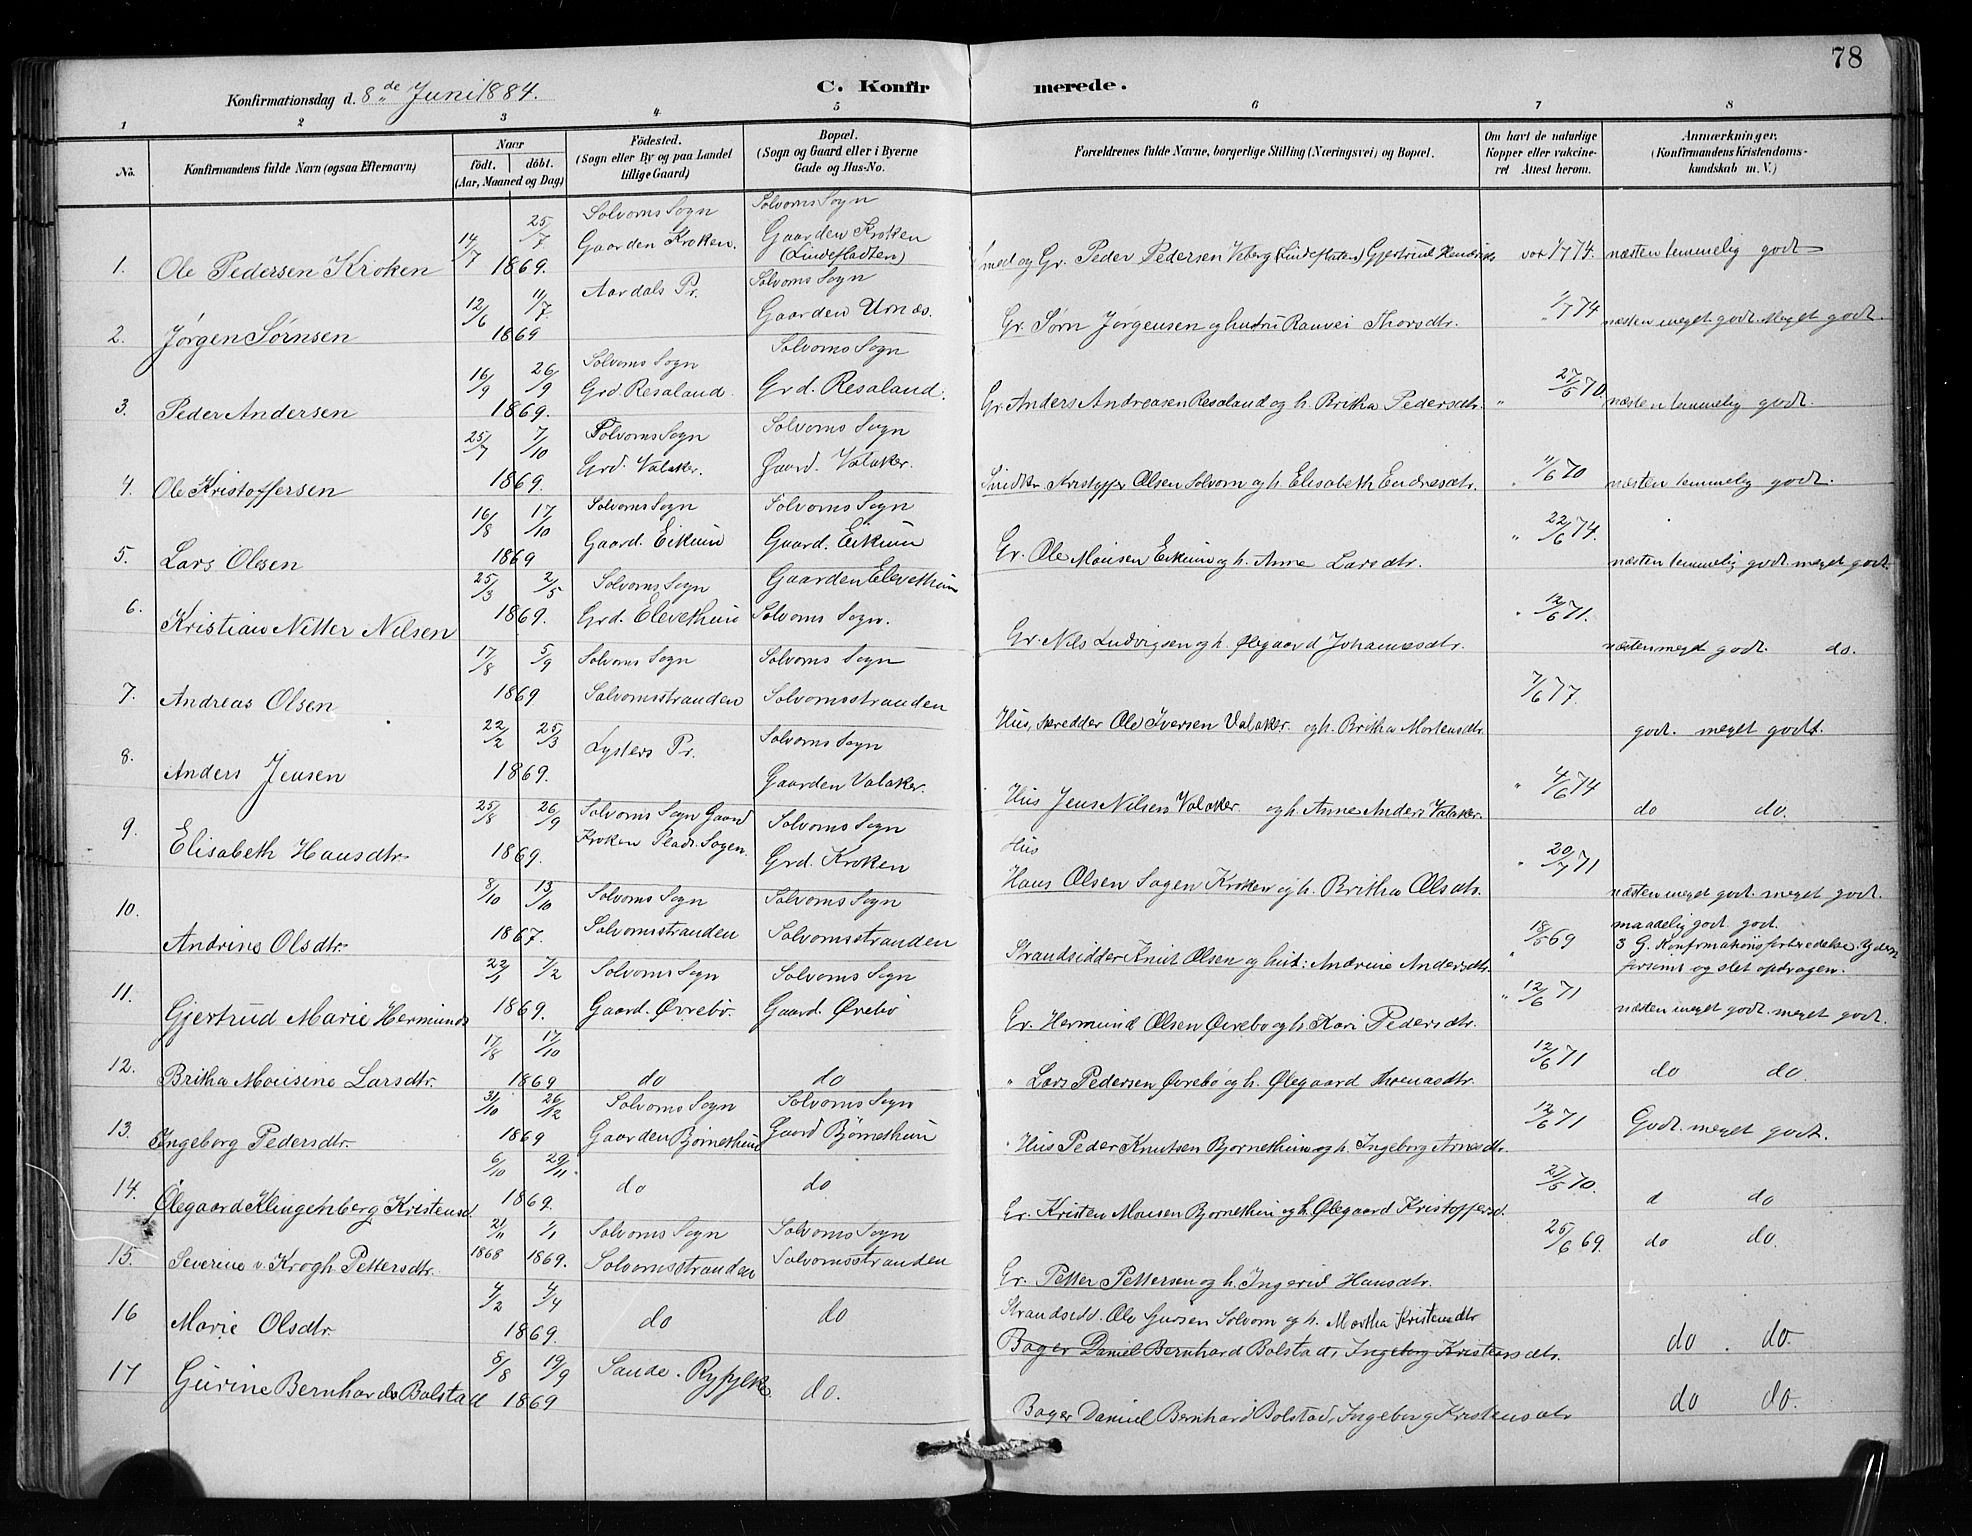 78
Konfirmationsdag d. 8de Juni 1884.
C. Konfirmerede.
1 2 3 4 5 6 7 8
No.
Konfirmandens fulde Navn (ogsaa Efternavn)
Naar
født. døbt.
(Aar, Maaned og Dag)
Fødested.
(Sogn eller By og paa Landet
tillige Gaard)
Bopæl.
(Sogn og Gaard eller i Byerne
Gade og Hus-No.
Forældrenes fulde Navne, borgerlige Stilling (Næringsvei) og Bopæl.
Om havt de naturlige
Kopper eller vakcine-
ret Attest herom.
Anmærkninger.
(Konfirmandens Kristendoms-
kundskab m. V.)
1. Ole Pedersen Kroken 14/7 25/7 1869. Solvorns Sogn Gaarden Kroken. Solvorns Sogn Gaarden Kroken (Lindefladten) Gr. Peder Pedersen Veberg (Lindeflaten) Gjertrud Henriks 1/7 74. næsten temmelig godt
2. Jørgen Sørnsen 12/6 11/7 1869 Aardals Pr. Solvorns Sogn Gaarden Urnæs. Gr. Sørn Jørgensen og hustru Ranvei Thorsdtr. 1/7 74 næsten meget godt. Meget godt.
3. Peder Andersen 16/9 26/9 1869. Solvorns Sogn Grd. Resaland. Solvorns Sogn Grd. Resaland. Gr. Anders Andreasen Resaland og h. Britha Pedersdtr. " 27/5 70. næsten temmelig godt.
4. Ole Kristoffersen 25/7 7/10 1869. Solvorns Sogn Grd. Valaker. Solvorns Sogn Gaard. Valaker. Kristoffer Olsen Solvorn og h. Elisabeth Endresdtr. " 11/6 70 næsten temmelig godt.
5. Lars Olsen 16/8 17/10 1869 Solvorns Sogn Gaard. Eikum Solvorns Sogn Gaard. Eikum Gr. Ole Monsen Eikum og h. Anne Larsdtr. " 22/6 74. næsten temmelig godt meget godt
6. Kristian Nitter Nilsen 25/3 2/5 1869. Solvorns Sogn Grd. Elvethun Gaarden Elvethun Solvorns Sogn. Gr. Nils Ludvigsen og h. Ølegaard Johannesdtr. " 12/6 71. næsten meget godt. do.
7. Andreas Olsen 17/8 5/9 1869 Solvorns Sogn Solvornsstranden Solvorns Sogn Solvornsstranden Hus, Ole Iversen Valaker. og h. Britha Mortensdtr. 7/6 77. godt. meget godt.
8. Anders Jensen 22/2 25/3 1869. Lysters Pr. Solvorns Sogn Gaarden Valaker. Hus Jens Nilsen Valaker. og h. Anne Anders Valaker. " 4/6 74 do do.
9. Elisabeth Hansdtr. 25/8 26/9 1869. Solvorns Sogn Gaard Kroken Plads. Sogen. Solvorns Sogn Grd. Kroken Hus Hans Olsen Sogen Kroken og h. Britha Olsdtr. " 20/7 71 næsten meget godt. meget godt.
10. Andrine Olsdtr. 8/10 13/10 1867. Solvorns Sogn Solvornsstranden Solvorns Sogn Solvornsstranden Strandsidder Knut Olsen og hust: Andrine Andersdtr. " 18/5 69 maadelig godt. godt.
3 G. Konfirmationsforberedelse. Yderst
forsømt og slet opdragen.
11. Gjertrud Marie Hermunds 22/1 7/2 1869. Solvorns Sogn Gaard. Øvrebø. Solvorns Sogn Gaard. Øvrebø Gr. Hermund Olsen Øvrebø og h. Kari Pedersdtr. " 12/6 71 næsten meget godt. meget godt.
12. Britha Monsine Larsdtr. 17/8 17/10 1869 do do " Lars Pedersen Øvrebø og h. Ølegaard Thomasdtr. 12/6 71 do do.
13. Ingeborg Pedersdtr. 31/10 26/12 1869 Solvorns Sogn Gaarden Bjørnethun Solvorns Sogn Gaard Bjørnethun Hus Peder Knutsen Bjørnethun og h. Ingeborg Arnesdtr. 12/6 71 Godt. meget godt.
14. Ølegaard Klingenberg Kristensd. 6/10 29/11 1869. do do Gr. Kristen Monsen Bjørnethun og h. Ølegaard Kristoffersd. 27/5 70. d do
15. Severine v. Krogh Pettersdtr. 21/11 1868 1/1 1869. Solvorns Sogn Solvornsstranden Solvorns Sogn Solvornsstranden Gr. Petter Pettersen og h. Ingerid Hansdtr. 25/6 69. do do.
16 Marie Olsdtr. 4/2 4/4 1869. do do Strandsidd. Ole Solvorn og h. Martha Kristensdtr do. do.
Bager Daniel Bernhard Bolstad, Ingeborg Kristensdtr.
17 Gurine Bernhards Bolstad 8/8 19/9 1869 Sande. Ryfylke do. Bager Daniel Bernhard Bolstad, Ingeborg Kristensdtr do do.